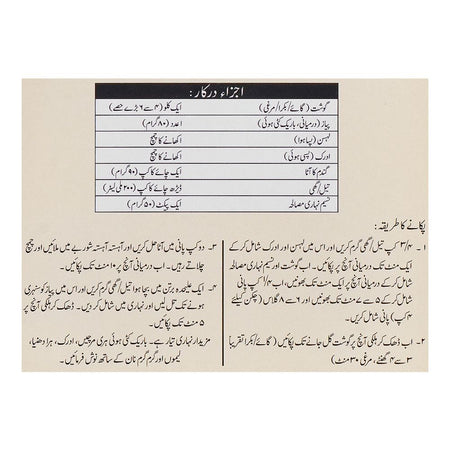 اجزاء درکار:
گوشت (گائے/بکرا/مرغی) ایک کلو (۴ سے ۶ بڑے حصے)
پیاز (درمیانی، باریک کٹی ہوئی) ۱ عدد (۸۰ گرام)
لہسن (پسا ہوا) ۱ کھانے کا چمچ
ادرک (پسی ہوئی) ۱ کھانے کا چمچ
گندم کا آٹا ایک چائے کا کپ (۹۰ گرام)
تیل/گھی ڈیڑھ چائے کا کپ (۲۰۰ ملی لیٹر)
نسیم نہاری مصالحہ ایک پیکٹ (۵۰ گرام)
پکانے کا طریقہ:
۱۔ ۳/۴ کپ تیل/گھی گرم کریں اور اس میں لہسن اور ادرک شامل کرکے
ایک منٹ تک درمیانی آنچ پر پکائیں۔ اب گوشت اور نسیم نہاری مصالحہ
شامل کرکے درمیانی آنچ پر ایک منٹ تک بھونیں، اب ۱/۴ کپ پانی
شامل کرکے ۵ سے ۷ منٹ تک بھونیں اور ۶ سے ۸ گلاس (چکن کیلئے
۴ کپ) پانی شامل کریں۔
۲۔ اب ڈھک کر ہلکی آنچ پر گوشت گل جانے تک پکائیں (گائے/بکرا تقریباً
۳ سے ۴ گھنٹے، مرغی ۳۰ منٹ)
۳۔ دو کپ پانی میں آٹا حل کریں اور آہستہ آہستہ شوربے میں ملائیں اور چمچ
چلاتے رہیں۔ اب درمیانی آنچ پر ۱۰ منٹ تک پکائیں۔
۴۔ ایک علیحدہ برتن میں بچا ہوا تیل/گھی گرم کریں اور اس میں پیاز کو سنہری
ہونے تک تل لیں اور نہاری میں شامل کردیں۔ ڈھک کر ہلکی آنچ پر
۵ منٹ تک پکائیں۔
مزیدار نہاری تیار ہے۔ باریک کٹی ہوئی ہری مرچیں، ادرک، ہرا دھنیا،
لیموں اور گرم گرم نان کے ساتھ نوش فرمائیں۔